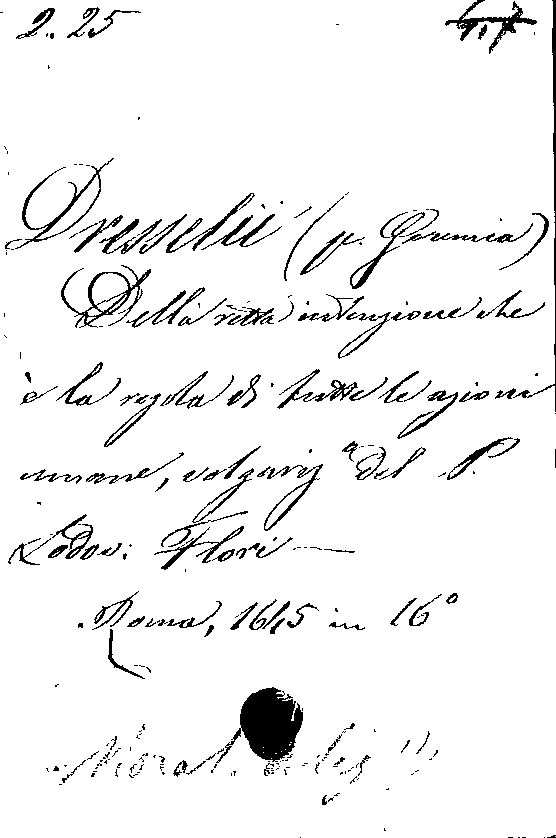 2. 25
Dresselii (p. Geremia)
Della retta intenzione che
è la regola di tutte le azioni
umane, volgarizª del P.
Lodov: Flori —
Roma, 1645 in 16°
Moral. relig